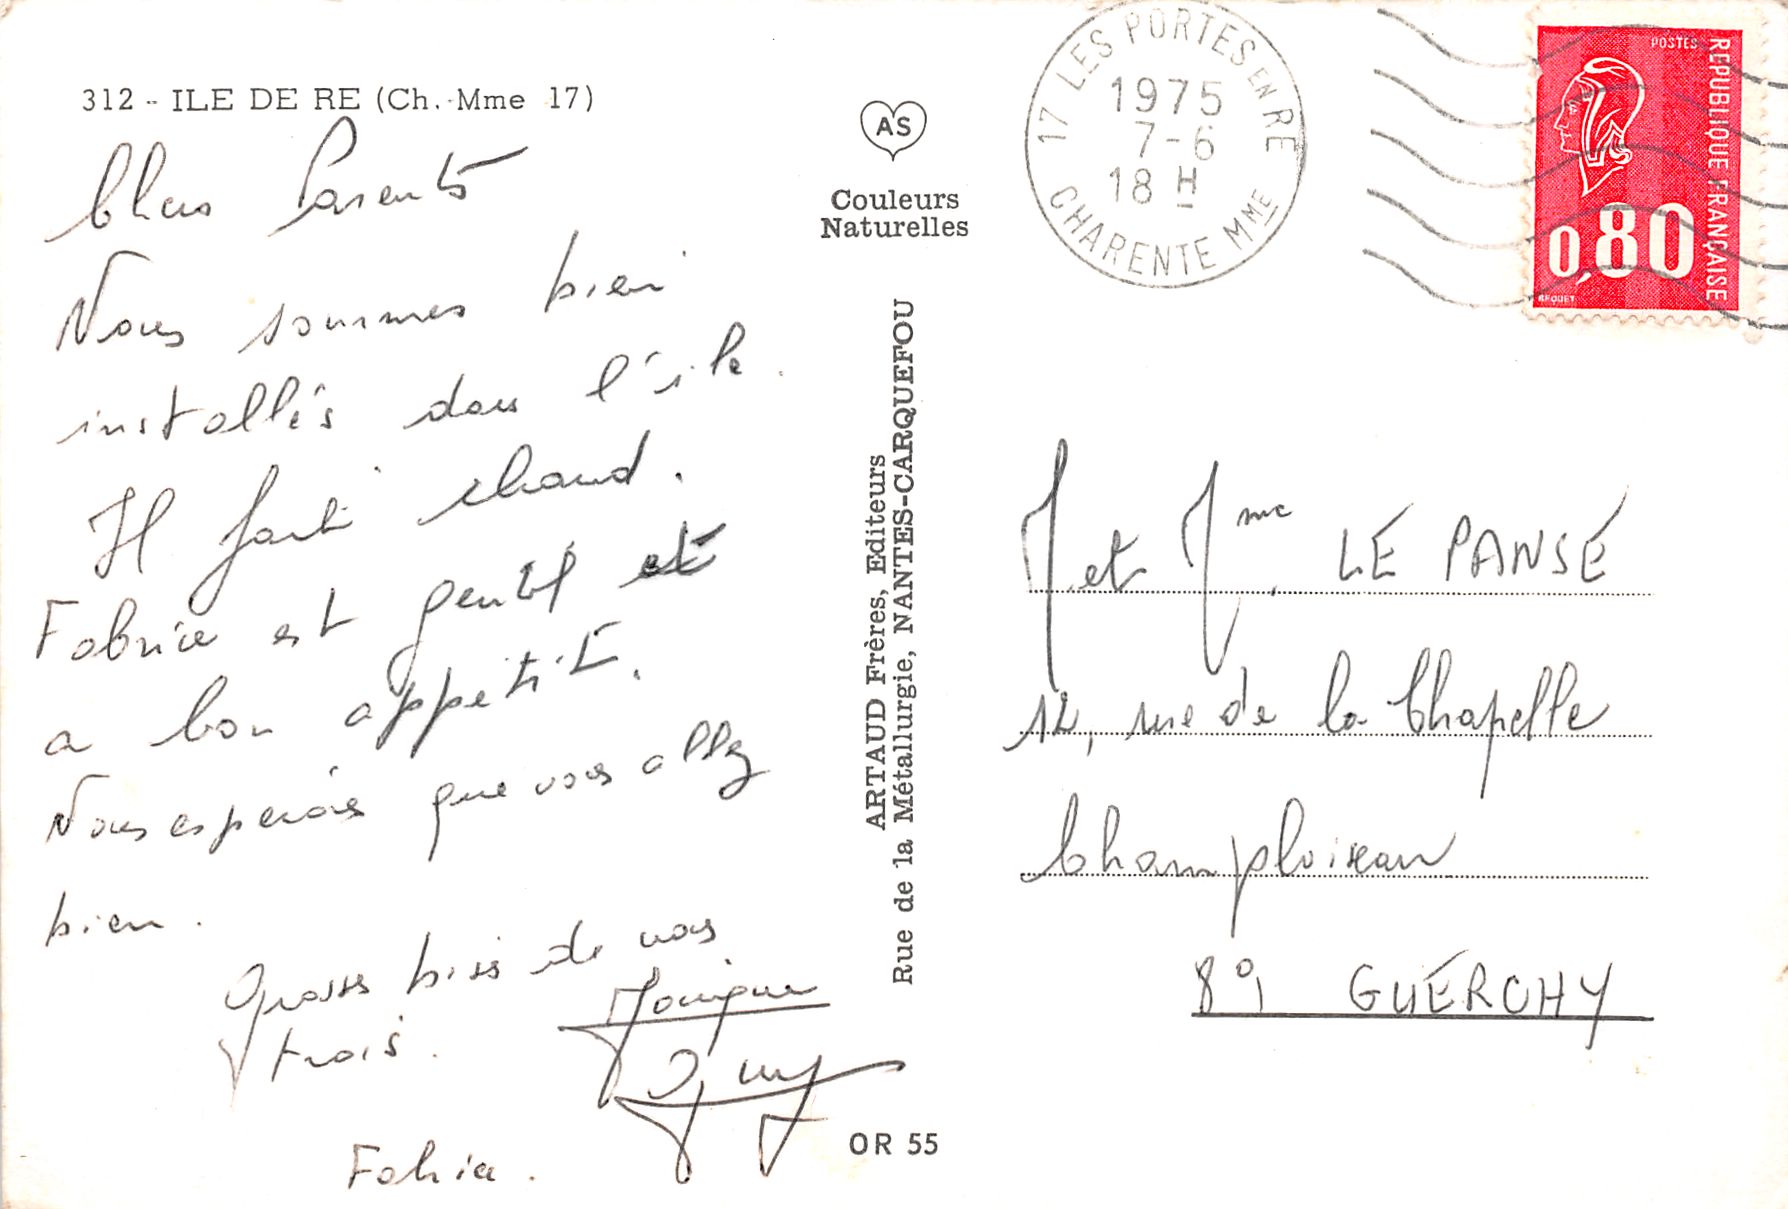 312 - ILE DE RE (Ch.-Mme 17)
Chers Parents
Nous sommes bien
installés dans l'île.
Il fait chaud.
Fabrice est gentil et
a bon appétit.
Nous espérons que vous allez
bien.
Grosses bises de nous
trois.
Monique
Guy
Fabrice.
AS
Couleurs
Naturelles
ARTAUD Frères, Editeurs
Rue de la Métallurgie, NANTES-CARQUEFOU
OR 55
17 LES PORTES EN RE
1975
7-6
18 H
CHARENTE MME
POSTES
REPUBLIQUE FRANÇAISE
0,80
BEQUET
M et Mme LE PANSE
12, rue de la Chapelle
Champloiseau
89 GUERCHY